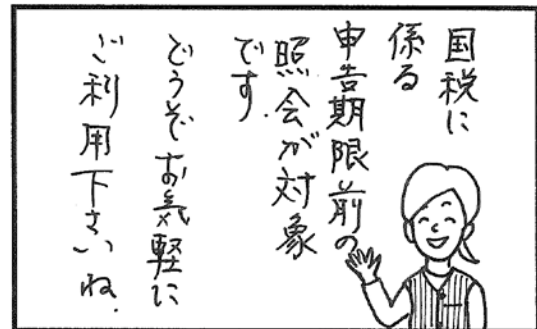 国税に
係る
申告期限前の
照会が対象
です.
どうぞお気軽に
ご利用下さいね.